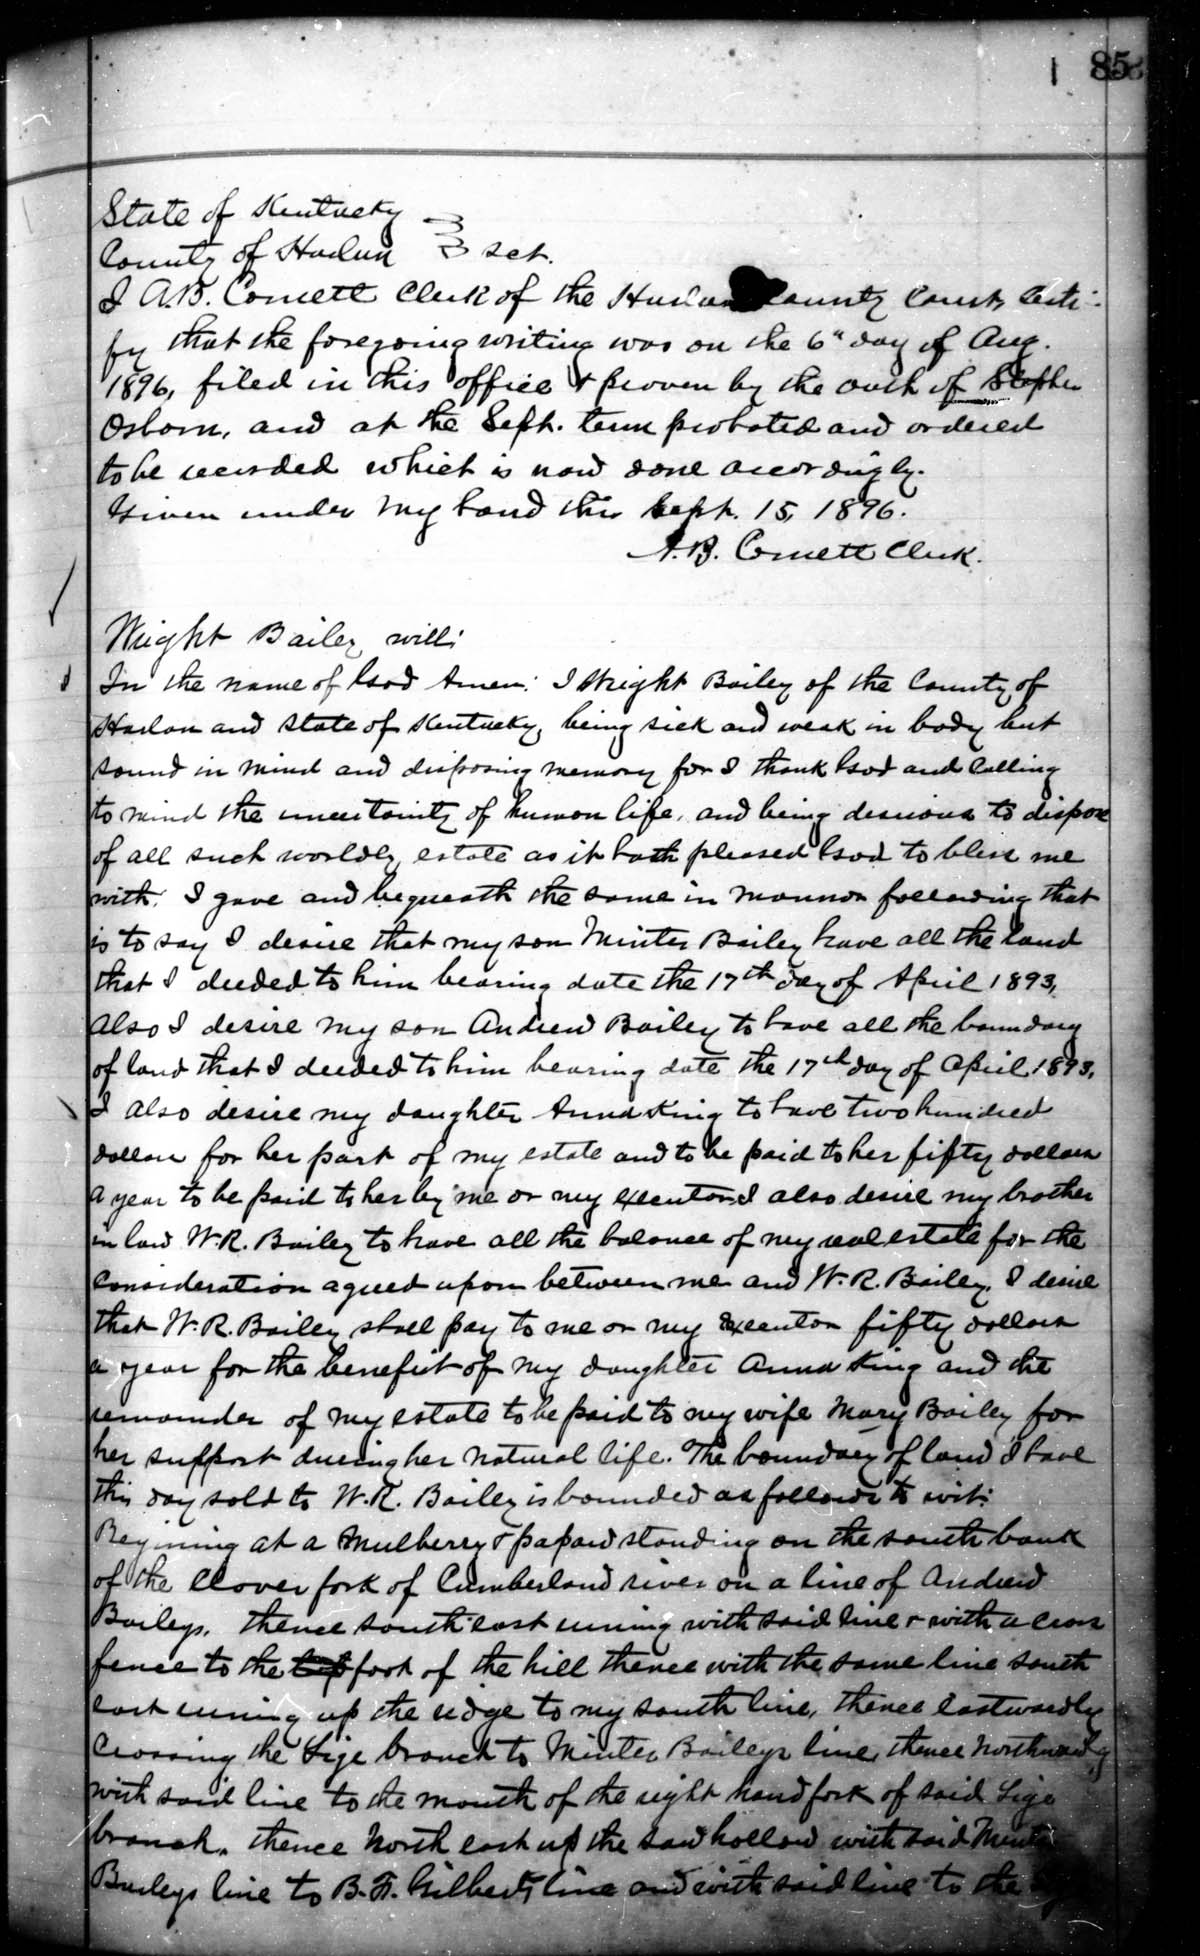 85
State of Kentucky
County of Harlan } sct.
I A.B. Cornett Clerk of the Harlan County Court, Certi-
fy that the foregoing writing was on the 6" day of Aug.
1896, filed in this office & proven by the oath of Stephen
Osborn, and at the Sept. term probated and ordered
to be recorded which is now done accordingly.
Given under my hand this Sept. 15, 1896.
A.B. Cornett Clerk.
Wright Bailey will:
In the name of God Amen: I Wright Bailey of the County of
Harlan and State of Kentucky, being sick and weak in body but
sound in mind and disposing memory for I thank God and Calling
to mind the uncertainty of human life, and being desirous to dispose
of all such worldly estate as it hath pleased God to bless me
with. I gave and bequeath the same in mannor following that
is to say I desire that my son Minter Bailey have all the land
that I deeded to him bearing date the 17th day of April 1893,
Also I desire my son Andrew Bailey to have all the boundary
of land that I deeded to him bearing date the 17th day of April 1893,
I also desire my daughter Anna King to have two hundred
dollars for her part of my estate and to be paid to her fifty dollars
a year to be paid to her by me or my executor I also desire my brother
in law W.R. Bailey to have all the balance of my real estate for the
consideration agreed upon between me and W.R. Bailey, I desire
that W.R. Bailey shall pay to me or my Executor fifty dollars
a year for the benefit of my daughter Anna King and the
remainder of my estate to be paid to my wife Mary Bailey for
her support during her natural life. The boundary of land I have
this day sold to W.R. Bailey is bounded as follows to wit:
Begining at a Mulberry & papaw standing on the south bank
of the Clover fork of Cumberland river on a line of Andrew
Baileys, thence south east runing with said line & with a cross
fence to the foot of the hill thence with the same line south
east runing up the ridge to my south line, thence eastwardly
Crossing the Lige branch to Minter Baileys line, thence Northwardly
with said line to the mouth of the right hand fork of said Lige
branch, thence North east up the saw hollow with said Minter
Baileys line to B.F. Gilberts line and with said line to the